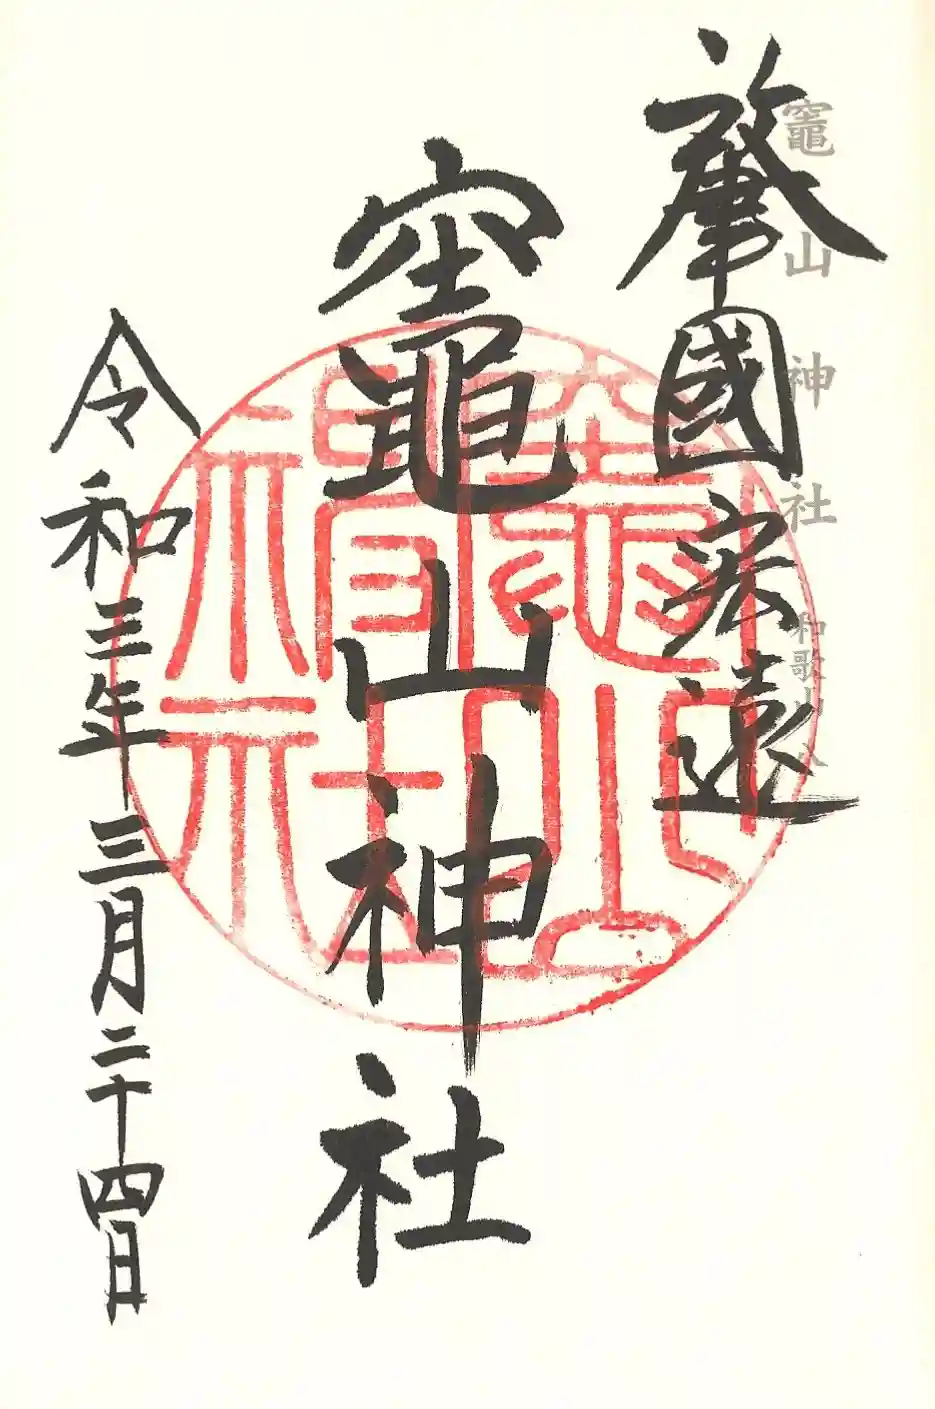 竈山神社 和歌山
肇國宏遠
竈山神社
令和三年三月二十四日
竈山神社